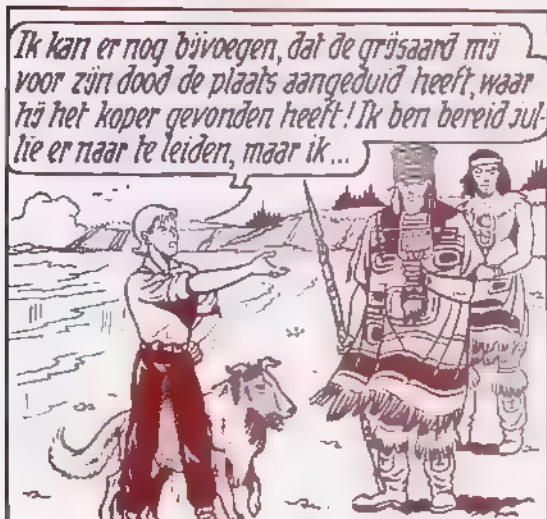 Ik kan er nog bijvoegen, dat de grijsaard mij
voor zijn dood de plaats aangeduid heeft, waar
hij het koper gevonden heeft! Ik ben bereid jul-
lie er naar te leiden, maar ik...